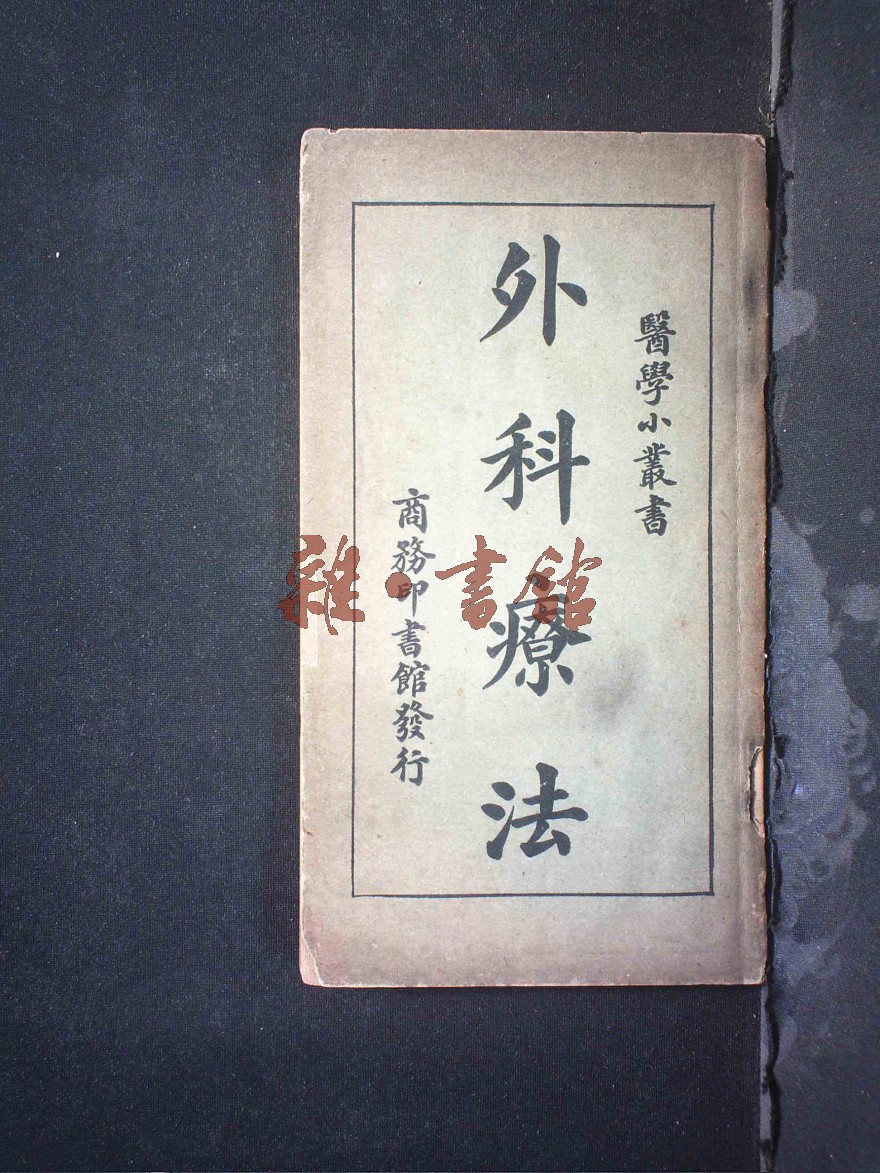 醫學小叢書
外科療法
商務印書館發行
雜·書館